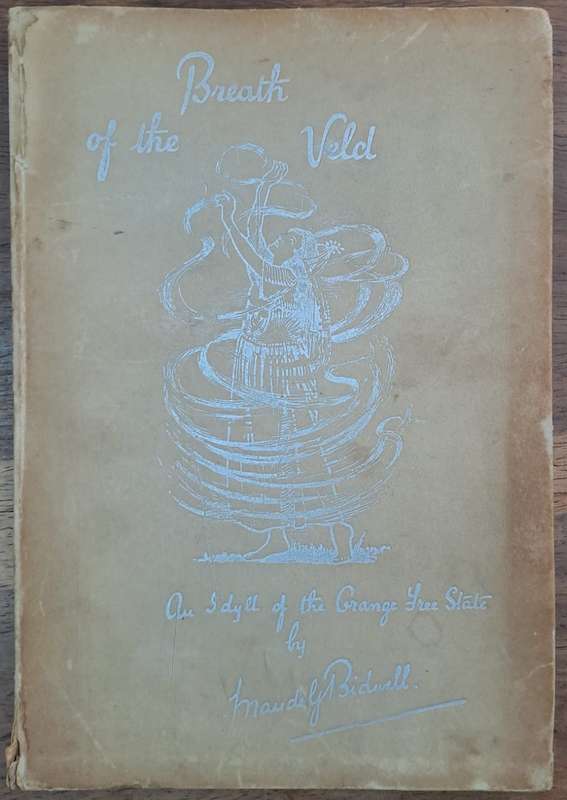 Breath
of the Veld
An Idyll of the Orange Free State
by
Maude G Bidwell.